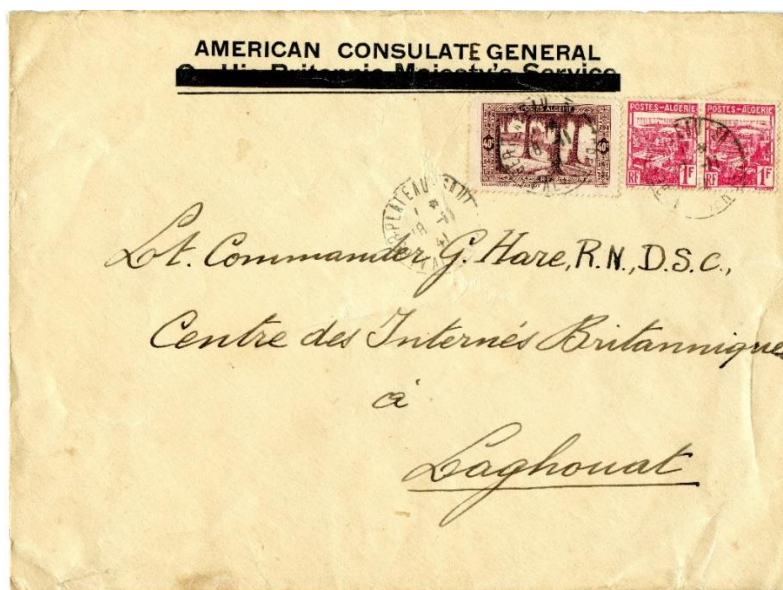 AMERICAN CONSULATE GENERAL
On His Britannic Majesty's Service
POSTES-ALGERIE POSTES-ALGERIE
RF 1F RF 1F
PLATEAU SAUL
18
41
Lt. Commander G. Hare, R.N., D.S.C.,
Centre des Internés Britanniques
à
Laghouat